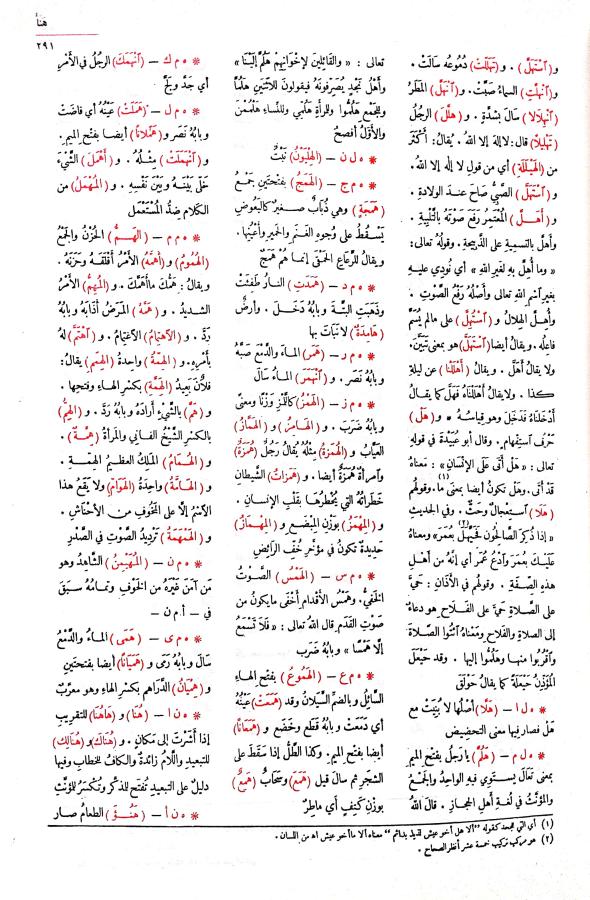 هنأ
٢٩١
و (آسْتَهَلَّ) . و (تَهَلَّلَتْ) دُمُوعُه سَالَتْ .
و (آنْهَلَّتِ) السماءُ صَبَّتْ . و (آنْهَلَّ) المَطَرُ
(آنْهِلَالا) سَالَ بِشِدَّةٍ . و (هَلَّلَ) الرجُلُ
(تَهْلِيلًا) قال : لا إلهَ إلا اللهُ . يُقالُ : أَكْثَرَ
من (الهَيْلَلَةِ) أي من قولِ لا إله إلا اللهُ .
و (آسْتَهَلَّ) الصبيُّ صاحَ عند الولادةِ .
و (أَهَلَّ) المُعْتَمِرُ رَفَعَ صَوْتَهُ بالتَّلْبِيَةِ .
وأَهَلَّ بالتسميةِ على الذَّبيحةِ . وقولُهُ تعالى :
« وما أُهِلَّ به لغيرِ اللهِ » أي نُودِيَ عليهِ
بغيرِ آسْمِ اللهِ تعالى وأَصْلُهُ رَفْعُ الصَّوْتِ .
وأُهِلَّ الهِلالُ و (آسْتُهِلَّ) على مالم يُسَمَّ
فاعِلُهُ . ويُقالُ أيضا (آسْتَهَلَّ) هو بمعنى تَبَيَّنَ .
ولا يقالُ أَهَلَّ . ويقالُ (أَهْلَلْنا) عن ليلةِ
كذا . ولايقالُ أَهْلَلْناهُ فَهَلَّ كما يقالُ
أَدْخَلْناهُ فَدَخَلَ وهو قِياسُه . و (هَلْ)
حَرْفُ آستِفهامٍ . وقال أبو عُبَيْدةَ في قوله
تعالى : « هَلْ أَتَى عَلَى الإِنْسانِ » : معناه
قَدْ أَتَى . وهَلْ تكونُ أيضا بمعنى ما . وقولهُم
(هَلَا) (١) آسْتِعْجالٌ وحَثٌّ . وفي الحديثِ
« إذا ذُكِرَ الصالِحُونَ فَحَيَّهَلَ (٢) بعُمَرَ » ومعناهُ
عليكَ بعُمَرَ وآدْعُ عُمَرَ أي إنَّه من أَهْلِ
هذه الصِّفةِ . وقولُهم في الأَذانِ : حَيَّ
على الصلاةِ حَيَّ على الفَلاحِ هو دعاءٌ
إلى الصلاةِ والفَلاحِ ومَعْناهُ آئتُوا الصلاةَ
وآقْرُبوا منها وهَلُمُّوا إليها . وقد حَيْعَلَ
المُؤَذِّنُ حَيْعَلةً كما يقالُ حَوْلَقَ
* ه ل ا – (هَلَّا) أَصْلُها لا بُنِيَتْ مع
هَلْ فصار فيها معنى التحضيضِ
* ه ل م – (هَلُمَّ) يارجلُ بفتح الميمِ
بمعنى تَعالَ يستوي فيه الواحِدُ والجَمْعُ
والمؤنَّثُ في لُغةِ أَهلِ الحِجازِ . قال اللهُ
تعالى : « والقائِلِينَ لإخْوانِهِمْ هَلُمَّ إلينا »
وأهلُ نَجْدٍ يُصَرِّفونَهُ فيقولونَ للآثنينِ هَلُمَّا
وللجَمْعِ هَلُمُّوا وللمرأةِ هَلُمِّي وللنِّساءِ هَلْمُمْنَ
والأَوَّلُ أفصحُ
* ه ل ن – (الهِلْيَوْنُ) نَبْتٌ
* ه م ج – (الهَمَجُ) بفتحتين جَمْعُ
(هَمَجةٍ) وهي ذُبابٌ صغيرٌ كالبَعُوضِ
يَسْقُطُ على وُجوهِ الغَنَمِ والحَميرِ وأَعْيُنِها .
ويقالُ للرَّعاعِ الحَمْقَى إنما هُمْ هَمَجٌ
* ه م د – (هَمَدَتِ) النارُ طَفِئَتْ
وذَهَبَتِ البتَّةَ وبابُهُ دَخَلَ . وأرضٌ
(هامِدةٌ) لا نَبَاتَ بها
* ه م ر – (هَمَر) الماءَ والدَّمْعَ صَبَّهُ
وبابُه نَصَر . و (آنْهَمَرَ) الماءُ سَالَ
* ه م ز – (الهَمْزُ) كاللَّمْزِ وَزْنًا ومعنًى
وبابُهُ ضَرَبَ . و (الهامِزُ) و (الهَمَّازُ)
العَيَّابُ و (الهُمَزةُ) مِثْلُه يقالُ رَجُلٌ (هُمَزَةٌ)
وآمرأةٌ هُمَزَةٌ أيضا . و (هَمَزاتُ) الشَّيطانِ
خَطَراتُهُ التي يُخْطِرُها بقَلْبِ الإنسانِ .
و (المِهْمَزُ) بوَزْنِ المِبْضَعِ و (المِهْمَازُ)
حَدِيدةٌ تكونُ في مؤخَّرِ خُفِّ الرَّائِضِ
* ه م س – (الهَمْسُ) الصَّوْتُ
الخَفِيُّ . وهَمْسُ الأَقدامِ أَخْفَى ما يكونُ من
صَوْتِ القَدَمِ قال اللهُ تعالى : « فَلَا تَسْمَعُ
إلَّا هَمْسًا » وبابُهُ ضَرَبَ
* ه م ع – (الهَمُوعُ) بفتحِ الهاءِ
السَّائِلُ وبالضمِّ السَّيَلانُ وقد (هَمَعَتْ) عَيْنُهُ
أي دَمَعَتْ وبابُهُ قَطَع وخَضَع و (هَمَعَانًا)
أيضا بفتح الميم . وكذا الطَّلُّ إذا سَقَطَ على
الشجَرِ ثم سالَ قيلَ (هَمَعَ) وسَحابٌ (هَمِعٌ)
بوَزْنِ كَتِفٍ أي ماطِرٌ
* ه م ك – (آنْهَمَكَ) الرجُلُ في الأَمْرِ
أي جَدَّ ولَجَّ
* ه م ل – (هَمَلَتْ) عَيْنُهُ أي فاضَتْ
وبابُهُ نَصَرَ و (هَمَلانًا) أيضا بفتح الميم .
و (آنْهَمَلَتْ) مِثْلُهُ . و (أَهْمَلَ) الشَّيْءَ
خَلَّى بَيْنَهُ وبَيْنَ نَفْسِهِ . و (المُهْمَلُ) من
الكلام ضِدُّ المُسْتَعْمَلِ
* ه م م – (الهَمُّ) الحُزْنُ والجَمْعُ
(الهُمُومُ) و (أَهَمَّهُ) الأَمْرُ أَقْلَقَهُ وحَزَنَهُ .
ويقالُ : هَمُّكَ ما أَهَمَّكَ . و (المُهِمُّ) الأَمْرُ
الشديدُ . و (هَمَّهُ) المَرَضُ أَذابَهُ وبابُهُ
رَدَّ . و (الآهْتِمامُ) الآغْتِمامُ . و (آهْتَمَّ) لهُ
بأَمْرِهِ . و (الهِمَّةُ) واحدةُ (الهِمَمِ) يقالُ :
فُلانٌ بَعِيدُ (الهِمَّةِ) بكَسْرِ الهاءِ وفَتْحِها .
و (هَمَّ) بالشَّيْءِ أرادَهُ وبابُهُ رَدَّ . و (الهِمُّ)
بالكسر الشَّيْخُ الفاني والمرأةُ (هِمَّةٌ) .
و (الهُمَامُ) المَلِكُ العظيمُ الهِمَّةِ .
و (الهامَّةُ) واحدةُ (الهَوَامِّ) ولا يَقَعُ هذا
الآسْمُ إلَّا على المَخُوفِ من الأَحْناشِ .
و (الهَمْهَمَةُ) تَرْدِيدُ الصَّوْتِ في الصَّدْرِ
* ه م ن – (المُهَيْمِنُ) الشاهدُ وهو
من آمَنَ غَيْرَهُ من الخَوْفِ وتمامُهُ سبَقَ
في – أ م ن –
* ه م ى – (هَمَى) الماءُ والدَّمْعُ
سَالَ وبابُهُ رَمَى و (هَمَيَانًا) أيضا بفتحتين
و (هِمْيَانُ) الدَّراهمِ بكَسْرِ الهاءِ وهو معرَّبٌ
* ه ن ا – (هُنَا) و (هَاهُنَا) للتقريبِ
إذا أَشَرْتَ إلى مَكانٍ . و (هُنَاكَ) و (هُنَالِكَ)
للتبعيدِ واللامُ زائدةٌ والكافُ للخِطابِ وفيها
دليلٌ على التبعيدِ تُفْتَحُ للذَّكَرِ وتُكْسَرُ للمُؤنَّثِ
* ه ن أ – (هَنُؤَ) الطعامُ صار
(١) أي التي كقوله "ألا هل أخو عيش لذيذ بدائم" معناه ألا ما أخو عيش اه من اللسان .
(٢) هو مركب تركيب خمسة عشر أنظر الصحاح .